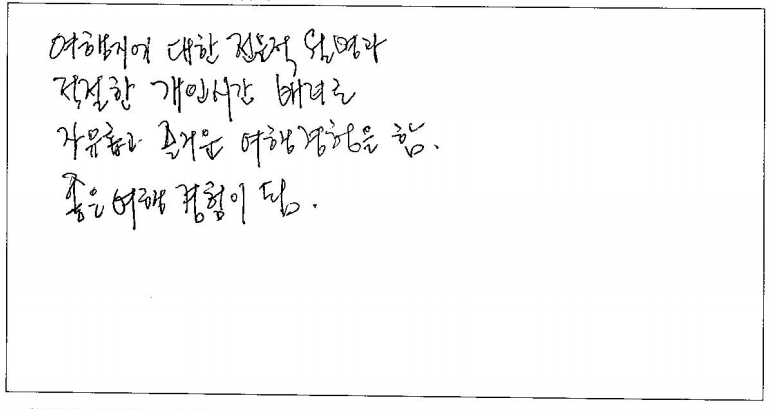 여행지에 대한 전문적 설명과
적절한 개인시간 배려로
자유롭고 즐거운 여행경험을 함.
좋은 여행 경험이 됨.